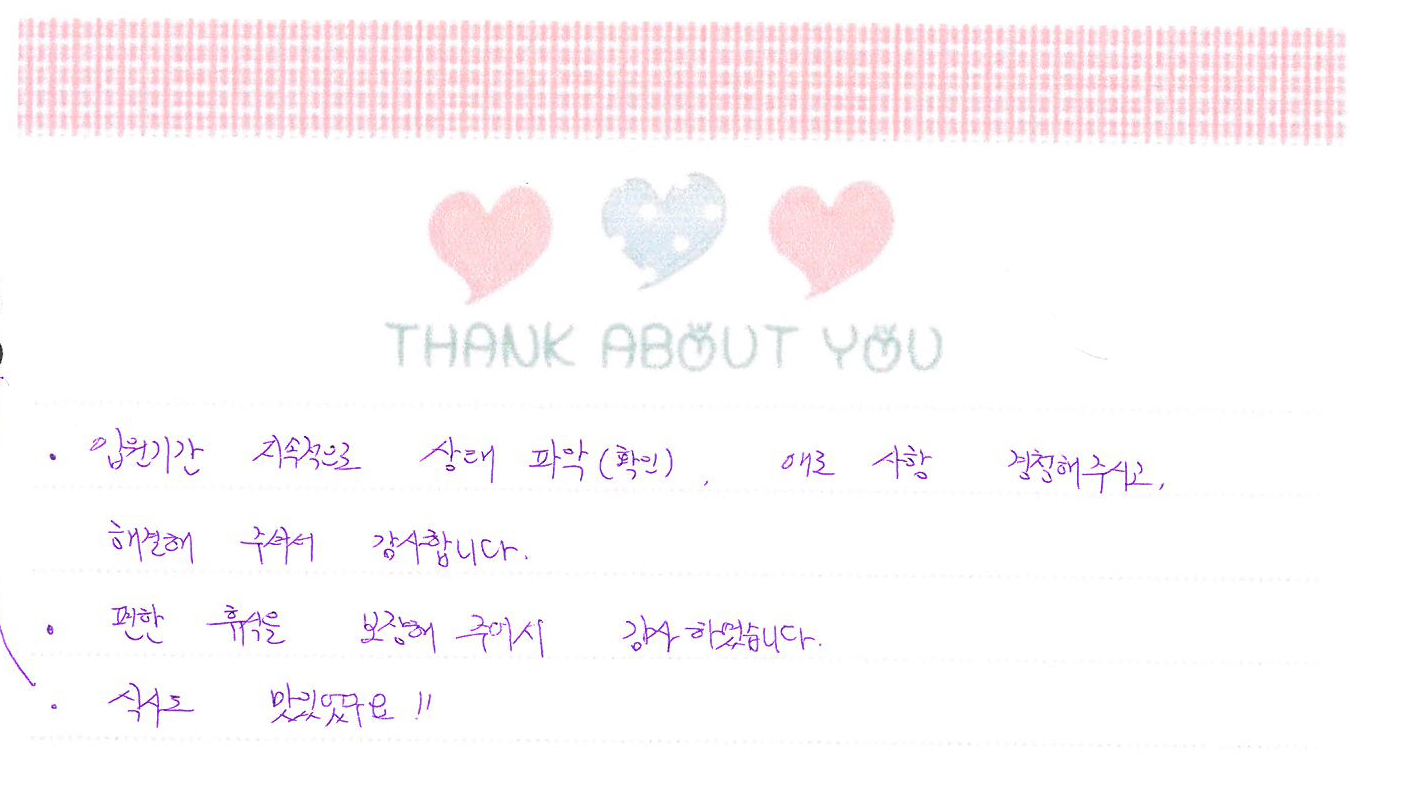 THANK ABOUT YOU
• 입원기간 지속적으로 상태 파악(확인), 애로 사항 경청해주시고,
해결해 주셔서 감사합니다.
• 편한 휴식을 보장해 주어서 감사하였습니다.
• 식사도 맛있었구요!!